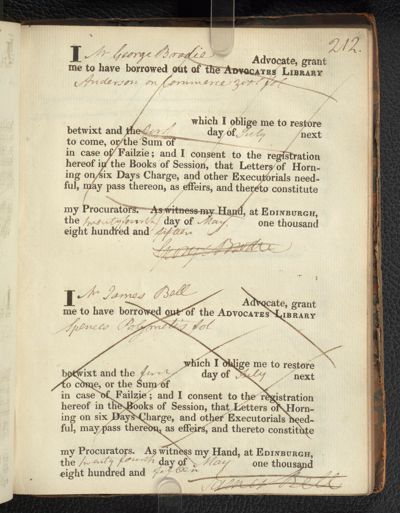 212.
I Mr George Brodie Advocate, grant
me to have borrowed out of the ADVOCATES LIBRARY
Anderson on Commerce 2 vol fol
which I oblige me to restore
betwixt and the first day of July next
to come, or the Sum of
in case of Failzie; and I consent to the registration
hereof in the Books of Session, that Letters of Horn-
ing on six Days Charge, and other Executorials need-
ful, may pass thereon, as effeirs, and thereto constitute
my Procurators. As witness my Hand, at EDINBURGH,
the twenty fourth day of May. one thousand
eight hundred and sixteen
George Brodie
I Mr James Bell Advocate, grant
me to have borrowed out of the ADVOCATES LIBRARY
Spences Polymetis fol
which I oblige me to restore
betwixt and the first day of July next
to come, or the Sum of
in case of Failzie; and I consent to the registration
hereof in the Books of Session, that Letters of Horn-
ing on six Days Charge, and other Executorials need-
ful, may pass thereon, as effeirs, and thereto constitute
my Procurators. As witness my Hand, at EDINBURGH,
the twenty fourth day of May one thousand
eight hundred and sixteen
James Bell